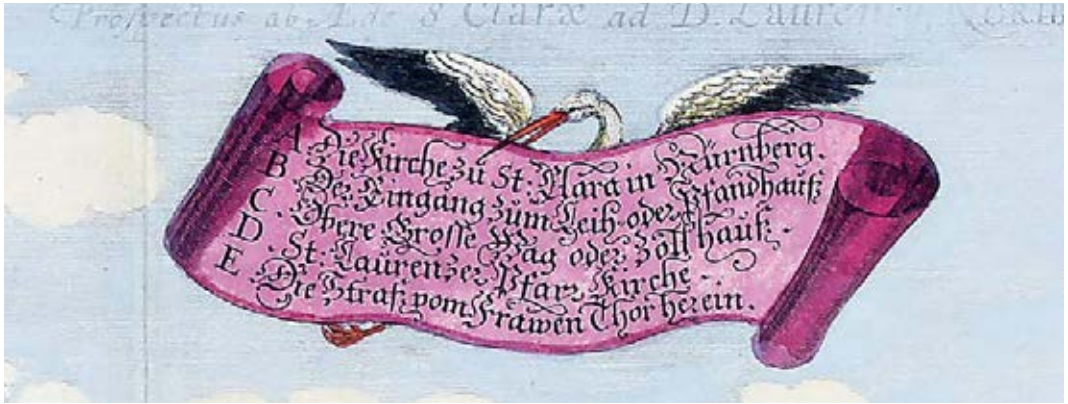 Prospectus ab Æde S Claræ ad D. Laurenty,
A Die Kirche zu St: Clara in Nürnberg.
B Der Eingang zum Leih- oder Pfandhauß
C. Obere Grosse Wag oder Zoll hauß.
D. St: Laurenzer Pfarr Kirche.
E Die Straß vom Frawen Thor herein.